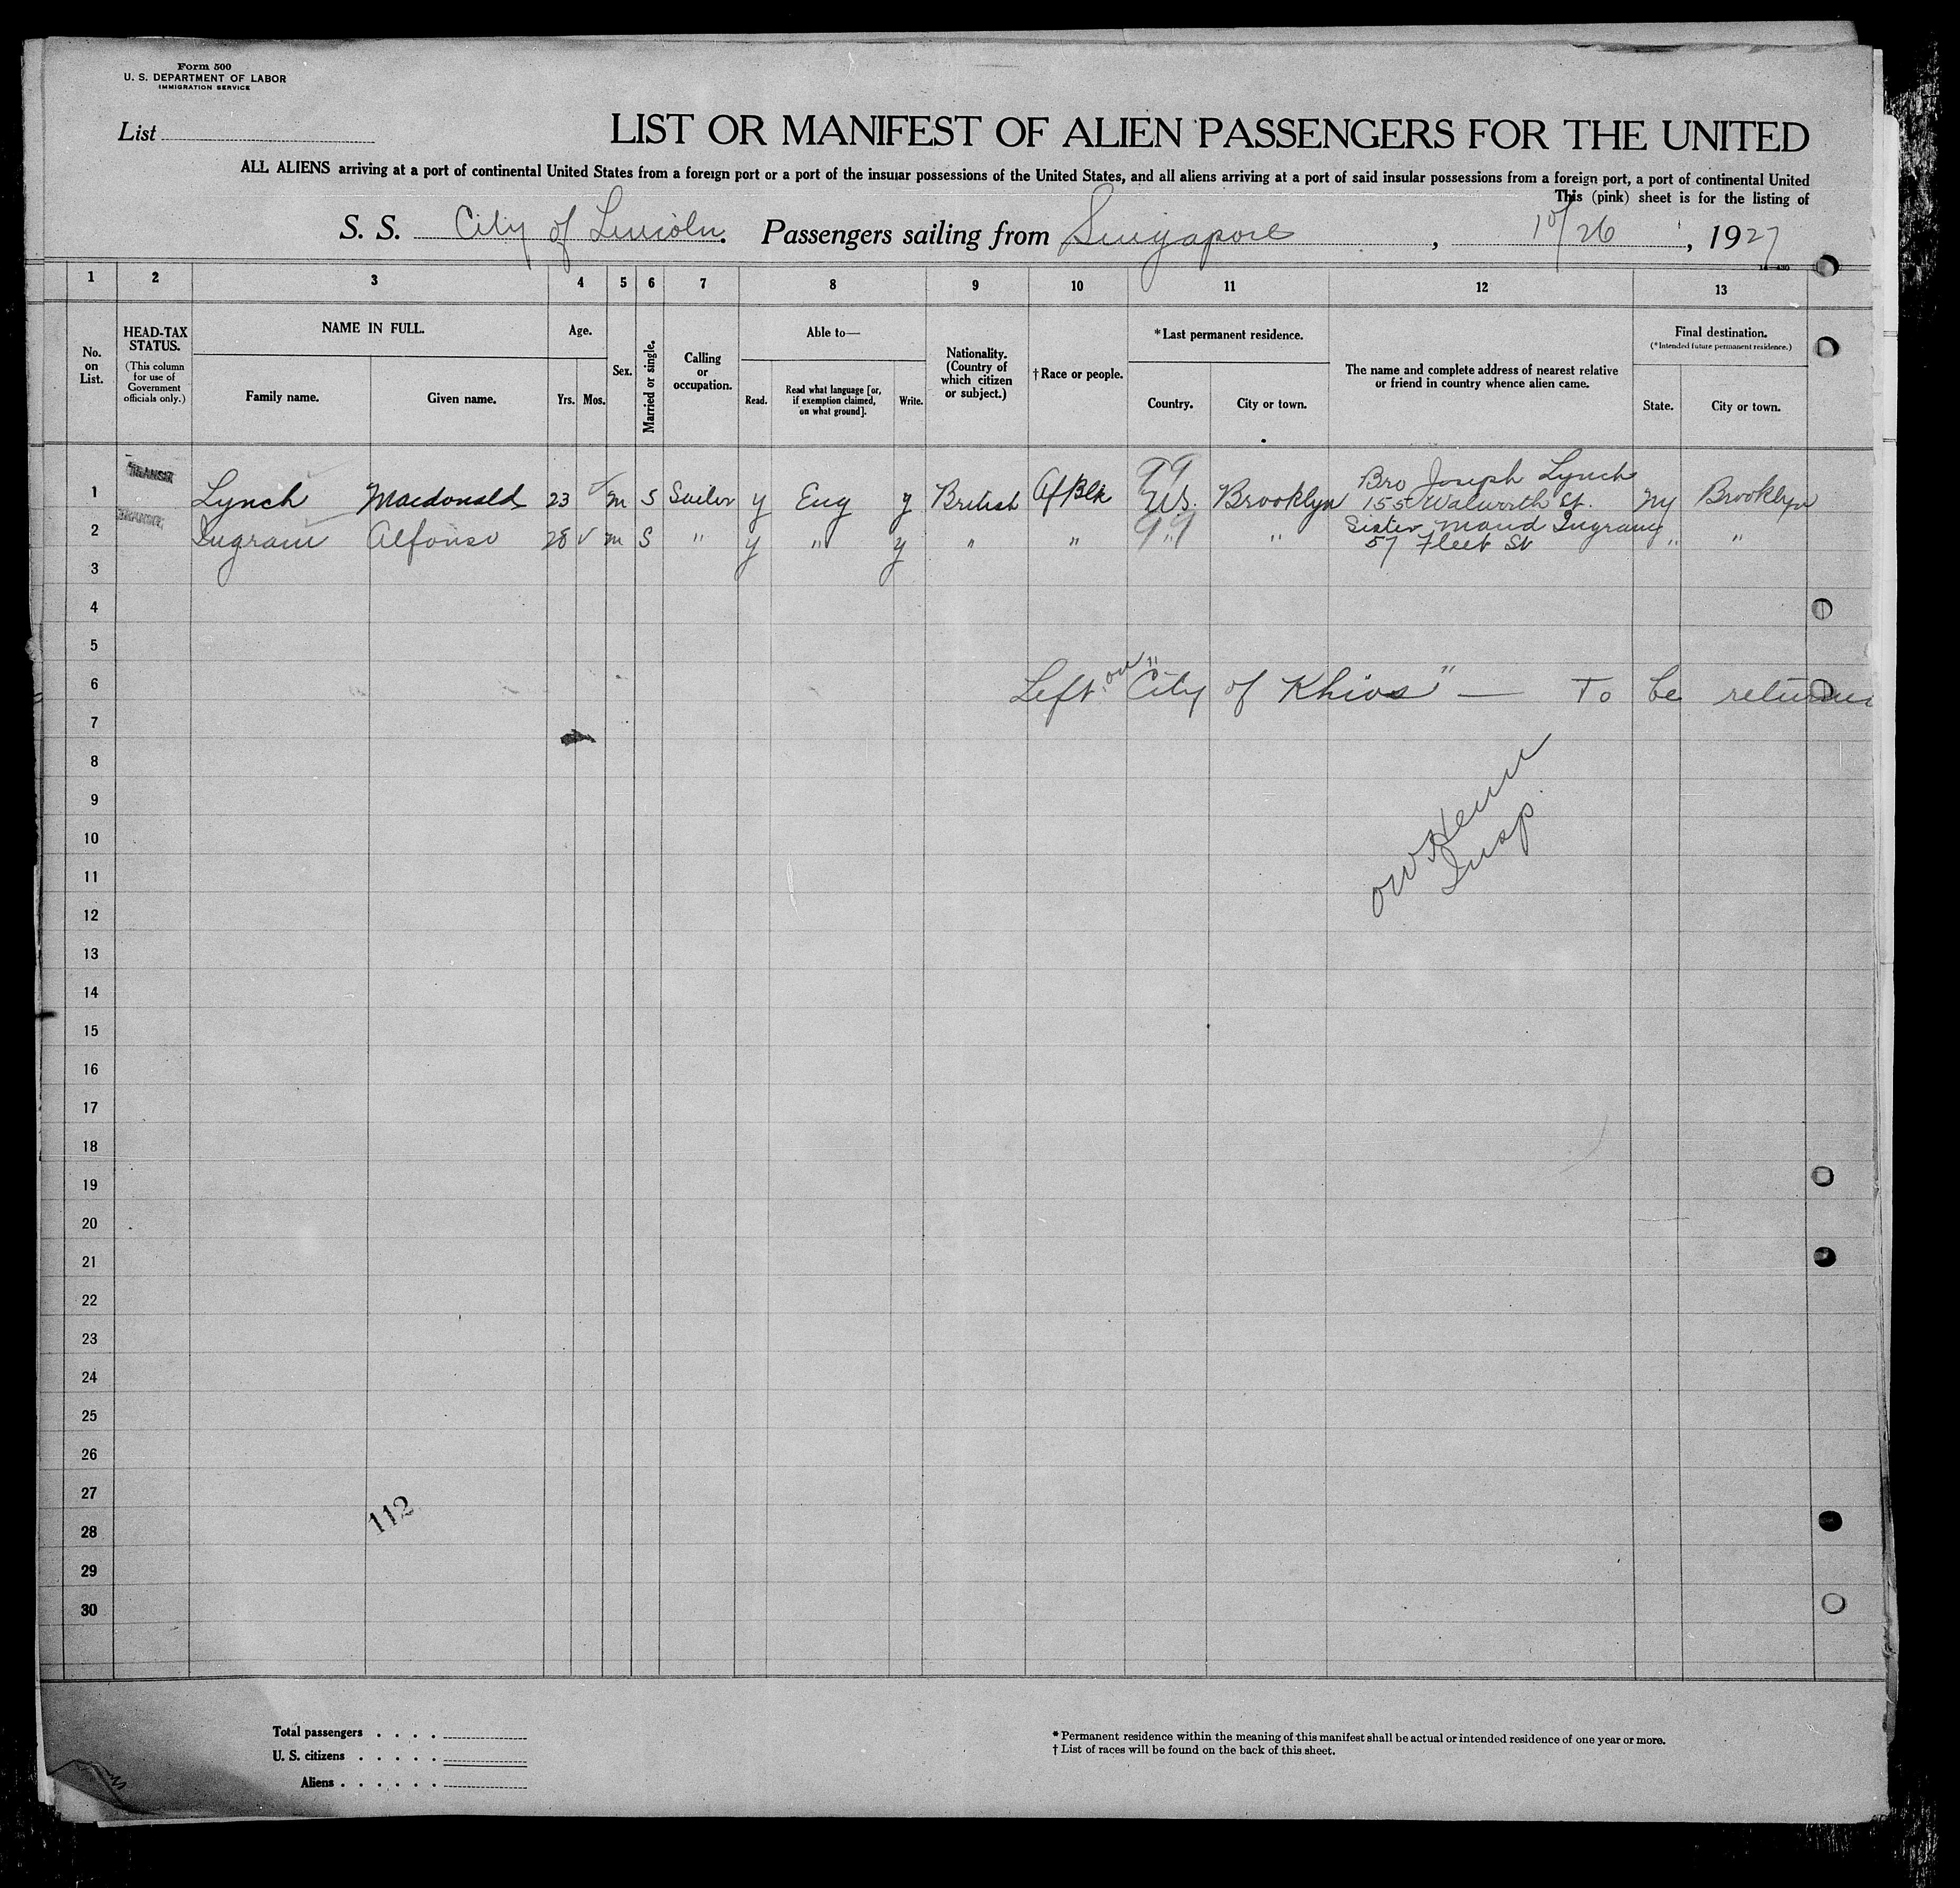 Form 500
U. S. DEPARTMENT OF LABOR
IMMIGRATION SERVICE
List
LIST OR MANIFEST OF ALIEN PASSENGERS FOR THE UNITED
ALL ALIENS arriving at a port of continental United States from a foreign port or a port of the insular possessions of the United States, and all aliens arriving at a port of said insular possessions from a foreign port, a port of continental United
This (pink) sheet is for the listing of
S. S. City of Lincoln. Passengers sailing from Singapore, 10/26, 1927
1 2 3 4 5 6 7 8 9 10 11 12 13
No. on List.
HEAD-TAX STATUS.
(This column for use of Government officials only.)
NAME IN FULL.
Family name. Given name.
Age.
Yrs. Mos.
Sex.
Married or single.
Calling or occupation.
Able to—
Read. Read what language [or, if exemption claimed, on what ground]. Write.
Nationality. (Country of which citizen or subject.)
†Race or people.
*Last permanent residence.
Country. City or town.
The name and complete address of nearest relative or friend in country whence alien came.
Final destination.
(*Intended future permanent residence.)
State. City or town.
TRANSIT 99 Bro Joseph Lynch
1 Lynch Macdonald 23 m S Sailor y Eng y British Af Blk U.S. Brooklyn 155 Walworth St. Ny Brooklyn
TRANSIT 99 Sister Maud Ingram
2 Ingram Alfonso 28 √ m S " y " y " " " " 57 Fleet St " "
3
4
5
6 Left on "City of Khios" — To be
7
8
9
10
11
12
13
14
15
16
17
18
19
20
21
22
23
24
25
26
27
28
29
30
Insp.
112
Total passengers . . . .
U. S. citizens . . . . .
Aliens . . . . . .
* Permanent residence within the meaning of this manifest shall be actual or intended residence of one year or more.
† List of races will be found on the back of this sheet.